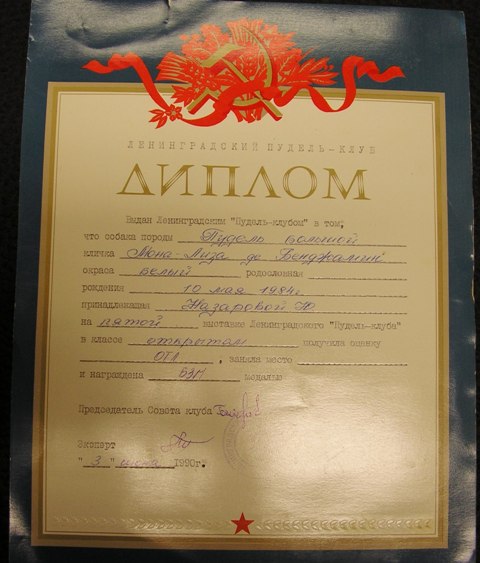 ЛЕНИНГРАДСКИЙ ПУДЕЛЬ-КЛУБ
ДИПЛОМ
Выдан Ленинградским "Пудель-клубом" в том,
что собака породы Пудель большой
кличка Мона-Лиза де Бенджамин
окраса белый родословная
рождения 10 мая 1984г.
принадлежащая Назаровой Ю.
на пятой выставке Ленинградского "Пудель-клуба"
в классе открытом получила оценку
ОТЛ , заняла место
и награждена БЗМ медалью
Председатель Совета клуба
Эксперт
" 3 " 1990г.